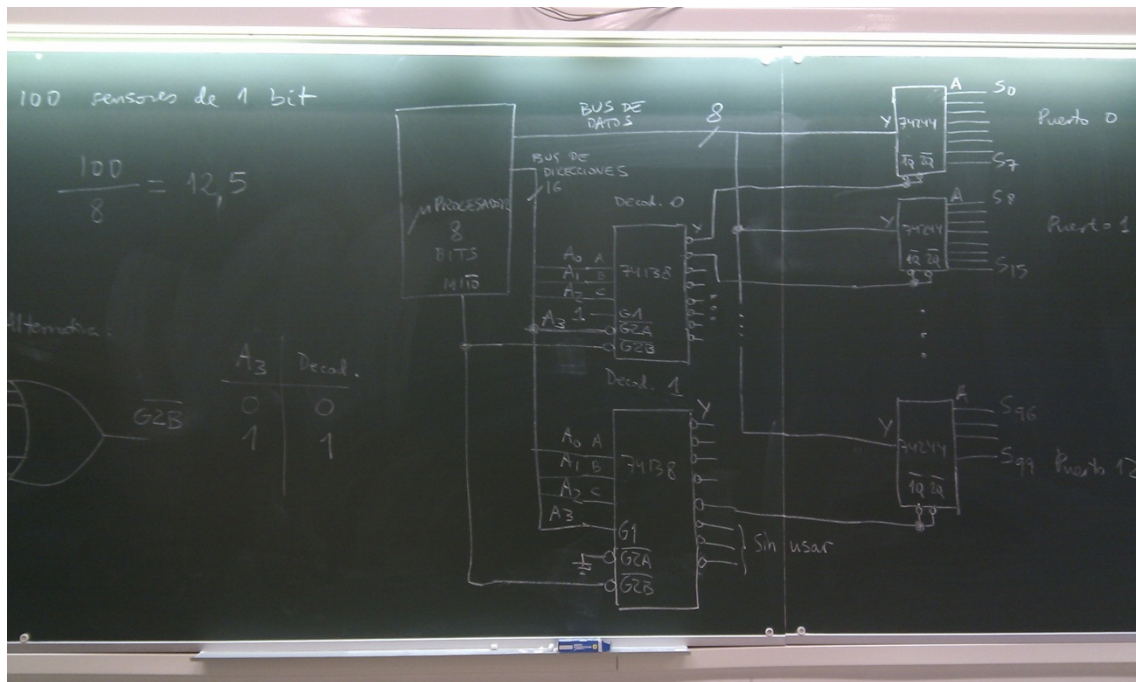 100 sensores de 1 bit
100
8
= 12,5
Alternativa.
G2B
A3 Decod.
0 0
1 1
μPROCESADOR
8
BITS
BUS DE
DATOS
8
BUS DE
DIRECCIONES
16
Decod. 0
Y
A0 A
A1 B
A2 C
1 G1
A3 G2A
G2B
74138
Decod. 1
Y
A0 A
A1 B
A2 C
A3 G1
G2A
G2B
74138
Sin usar
A
Y 74244
1G 2G
S0
S7
Puerto 0
A
Y 74244
1G 2G
S8
S15
Puerto 1
A
Y 74244
1G 2G
S96
S99
Puerto 12